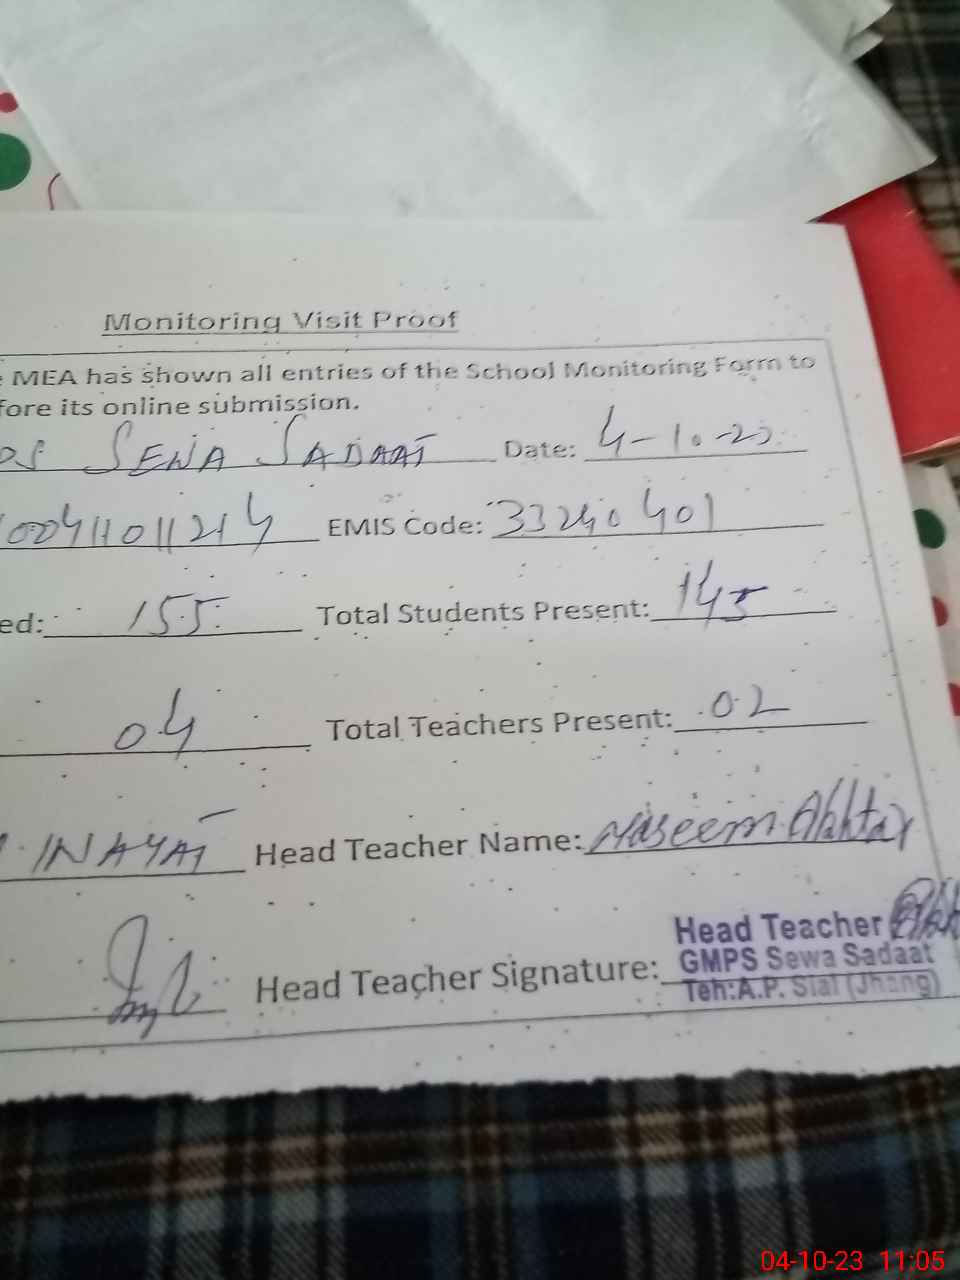 Monitoring Visit Proof
MEA has shown all entries of the School Monitoring Form to
fore its online submission.
SEWA SADAAT Date: 4-10-23
EMIS Code: 33240401
ed: 155 Total Students Present: 145
04 Total Teachers Present: 02
INAYAT Head Teacher Name: Naseem Akhtar
Head Teacher Signature: Head Teacher
GMPS Sewa Sadaat
Teh:A.P. Sial (Jhang)
04-10-23 11:05